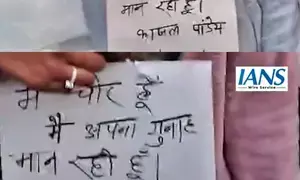 मान रहा हूँ।
काजल पांडेय
IANS
Wire Service
मैं चोर हूँ
मैं अपना गुनाह
मान रही हूँ।